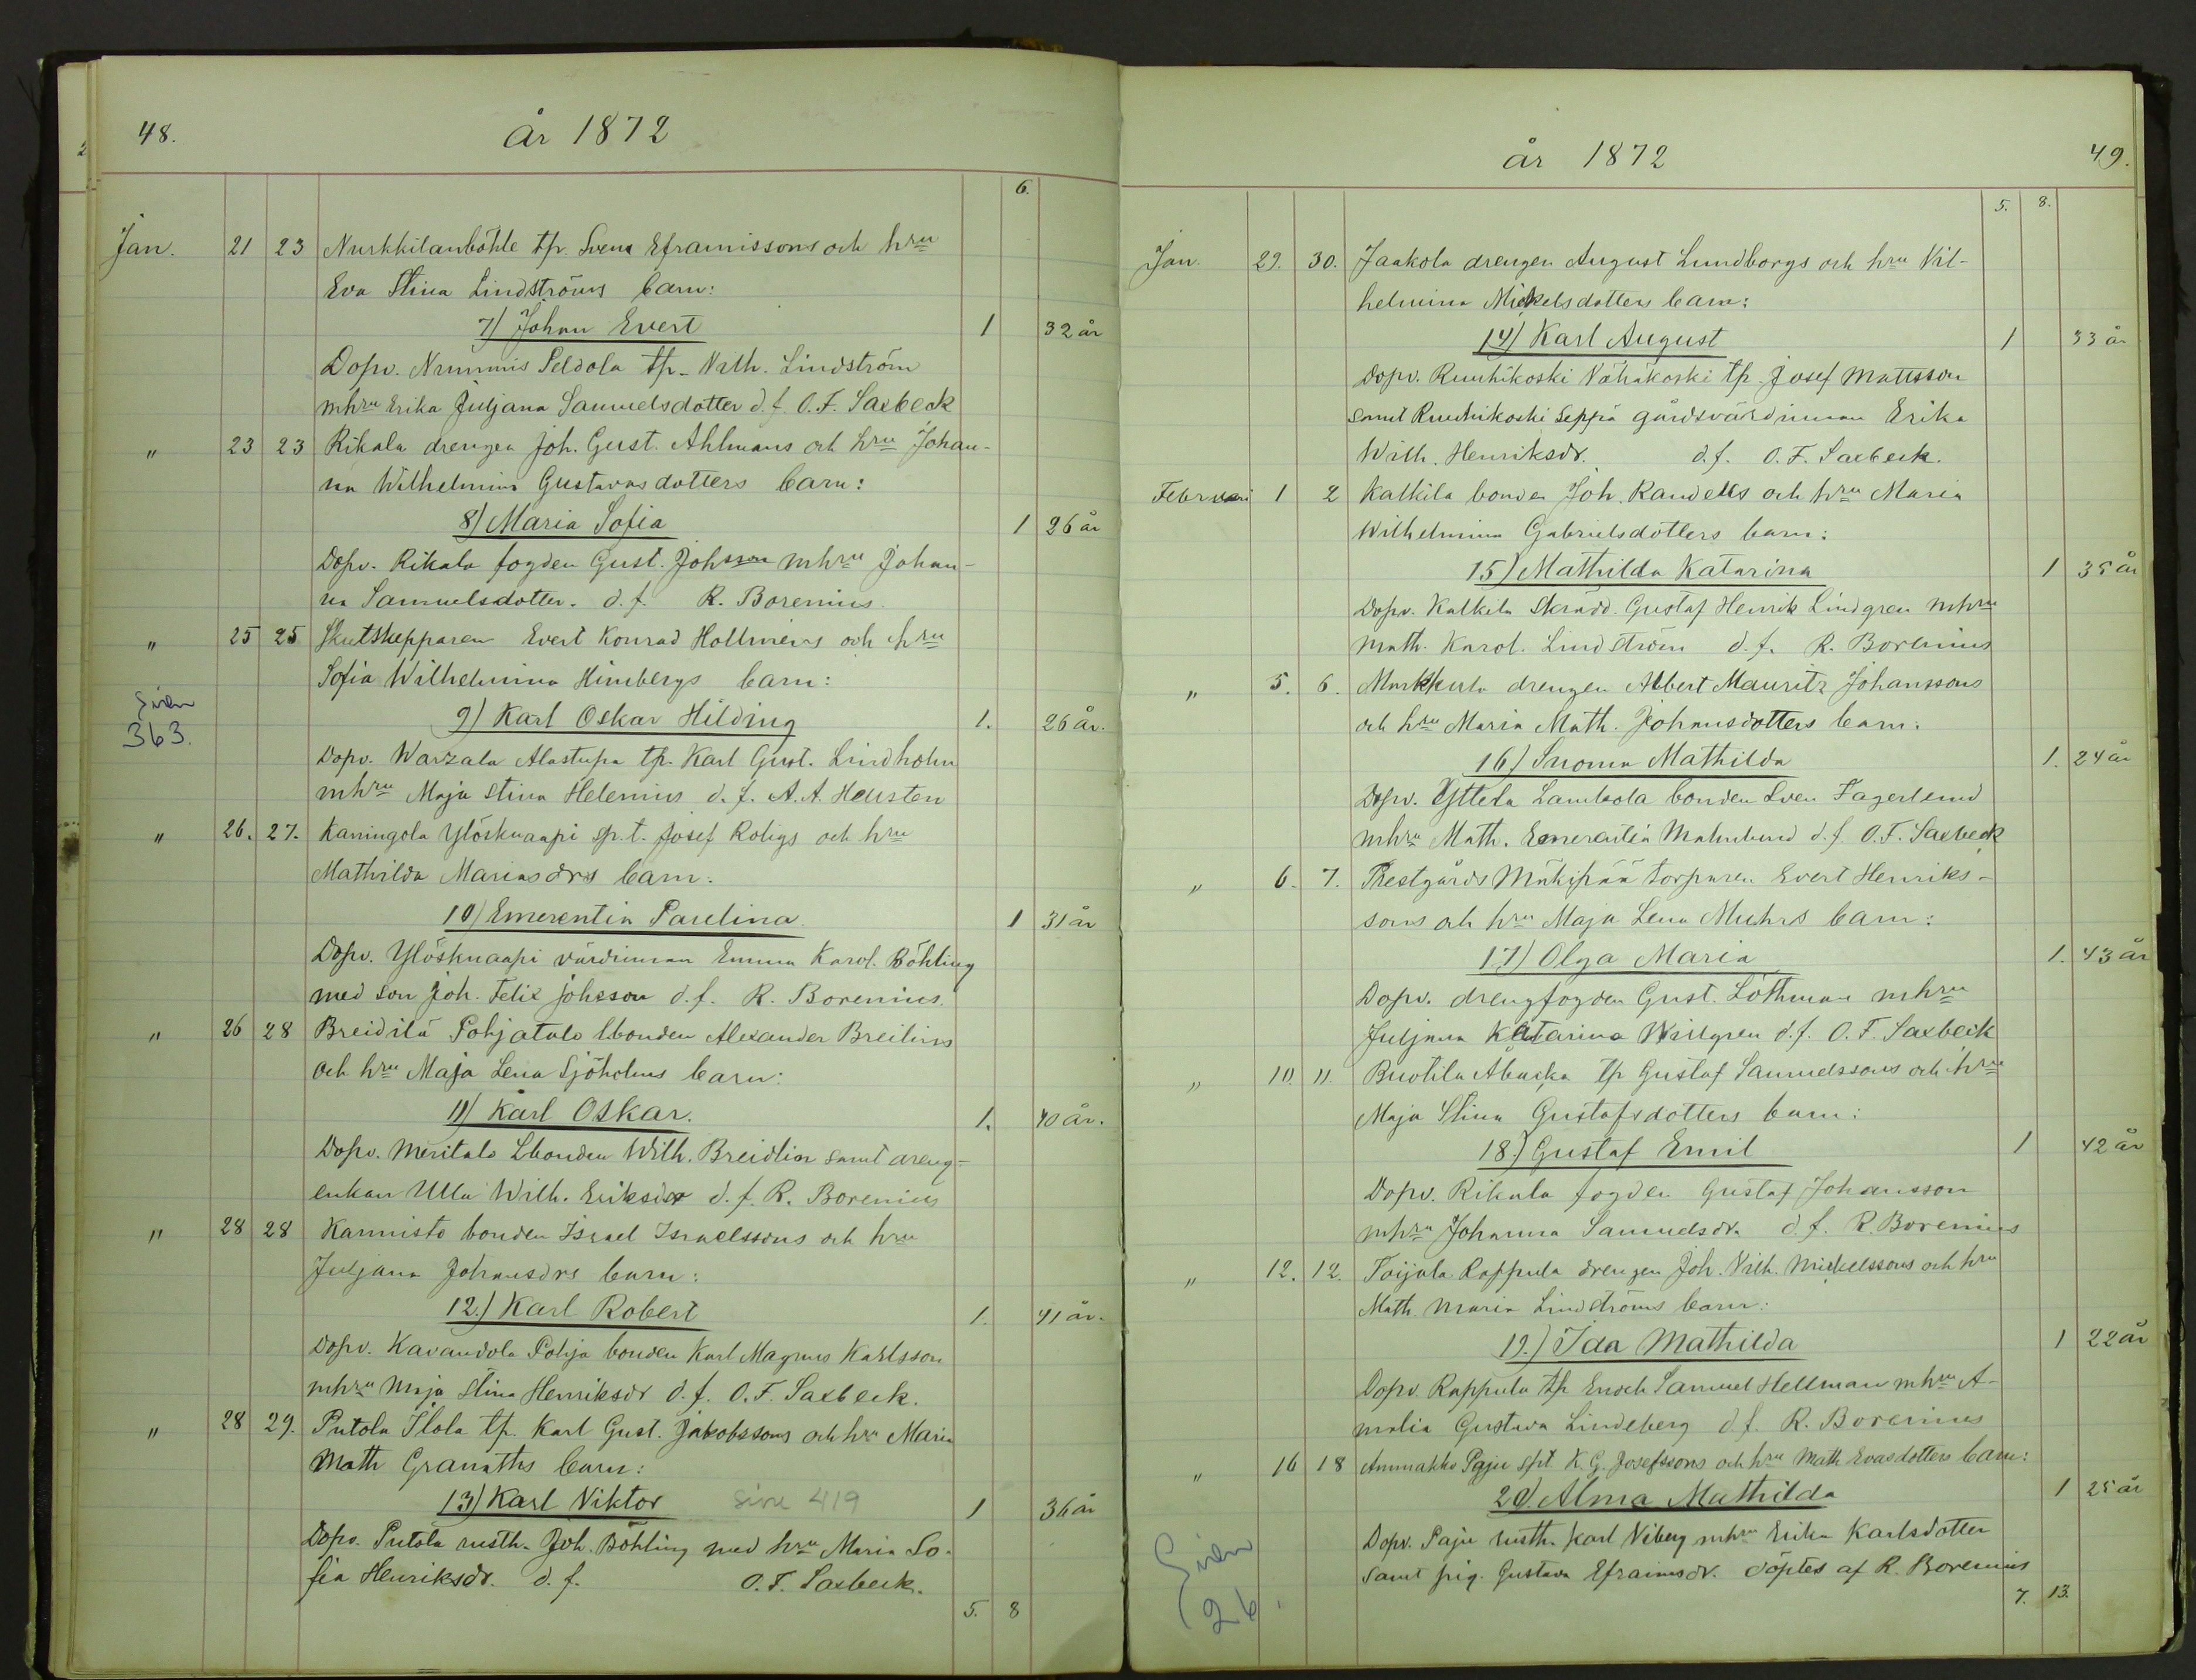 48.
år 1872
6.
Jan. 21 23 Nurkkilanböhle tp. Svens Eframissons och hru
Eva Stina Lindströms barn:
7) Johan Evert 1 32 år
Dopv. Nummis Peldola tp. Vilh. Lindström
mhru Erika Juljana Samuelsdotter d. f. O. F. Saxbeck
" 23 23 Rikala drengen Joh. Gust. Ahlmans och hru Johan-
na Wilhelmina Gustavasdotters barn:
8) Maria Sofia 1 26 år
Dopv. Rikala fogden Gust. Johsson mhru Johan-
na Samuelsdotter. d. f. R. Borenius.
" 25 25 Skutskepparen Evert Konrad Hollmens och hru
Sofia Wilhelmina Himbergs barn:
Siven
363.
9) Karl Oskar Hilding 1. 26 år.
Dopv. Warzala Alastupa tp. Karl Gust. Lindholm
mhru Maja Stina Helenius d. f. A. A. Heusten
" 26. 27. Kaningola Ylösknaapi sp. t. Josef Roligs och hru
Mathilda Mariasdrs barn:
10) Emerentia Paulina 1 31 år
Dopv. Ylösknaapi värdinnan Emma Karol. Böhling
med son Joh. Felix Johsson d. f. R. Borenius.
" 26 28 Breidilä Pohjatalo lbonden Alexander Breilins
och hru Maja Lena Sjöholms barn:
11) Karl Oskar. 1. 40 år.
Dopv. Meritalo Lbonden Wilh. Breidlin samt dreng-
enkan Ulla Wilh. Eriksdr d. f. R. Borenius
" 28 28 Kannisto bonden Israel Israelssons och hru
Juljana Johansdrs barn:
12.) Karl Robert 1. 41 år.
Dopv. Kavandola Pohja bonden Karl Magnus Karlsson
mhru Maja Stina Henriksdr d. f. O. F. Saxbeck.
" 28 29. Putola Ilola tp. Karl Gust. Jakobssons och hru Maria
Math Granaths barn:
13) Karl Viktor sivu 419 1 36 år
Dopv. Putola rusth. Joh. Böhling med hru Maria So-
fia Henriksdr. d. f. O. F. Saxbeck.
5. 8
år 1872
49.
5. 8.
Jan. 29. 30. Jaakola drengen August Lundborgs och hru Vil-
helmina Mickelsdotters barn:
14) Karl August 1 33 år
Dopv. Ruuhikoski Vähäkoski tp. Josef Mattsson
samt Ruuhikoski Seppä gårdsvärdinnan Erika
Wilh. Henriksdr. d. f. O. F. Saxbeck.
Februari 1 2 Kalkila bonden Joh. Randells och hru Maria
Wilhelmina Gabrielsdotters barn:
15) Mathilda Katarina 1 35 år
Dopv. Kalkila Skrädd. Gustaf Henrik Lindgren mhru
Math. Karol. Lindström d. f. R. Borenius
" 5. 6. Markkula drengen Albert Mauritz Johanssons
och hru Maria Math. Johansdotters barn.
16) Suoma Mathilda 1. 24 år
Dopv. Yttelä Lambola bonden Sven Fagerlund
mhru Math. Emerentia Malmlund d. f. O. F. Saxbeck
" 6. 7. Prestgårds Mäkipää torparen Evert Henriks-
sons och hru Maja Lena Muhrs barn:
17) Olga Maria 1. 43 år
Dopv. drengfogden Gust. Löthman mhru
Juljana Katarina Willgren d. f. O. F. Saxbeck
" 10. 11. Buotila Åbacka tp Gustaf Samuelssons och hru
Maja Stina Gustafsdotters barn:
18.) Gustaf Emil 1 42 år
Dopv. Rikala fogden Gustaf Johansson
mhru Johanna Samuelsdr. d. f. R. Borenius
" 12. 12. Toijala Rappula drengen Joh. Vilh. Mickelssons och hru
Math. Maria Lindströms barn:
19.) Ida Mathilda 1 22 år
Dopv. Rappula tp Enoch Samuel Hellman mhru A-
malia Gustava Lindeberg d. f. R. Borenius
" 16 18 Ammakko Paju spt. K. G. Josefssons och hru Math Evasdotters barn:
20). Alma Mathilda 1 25 år
Dopv. Paju rusth. Karl Viberg mhru Erika Karlsdotter
samt pig. Gustava Efraimsdr. döptes af R. Borenius
Siven
26.
7. 13.